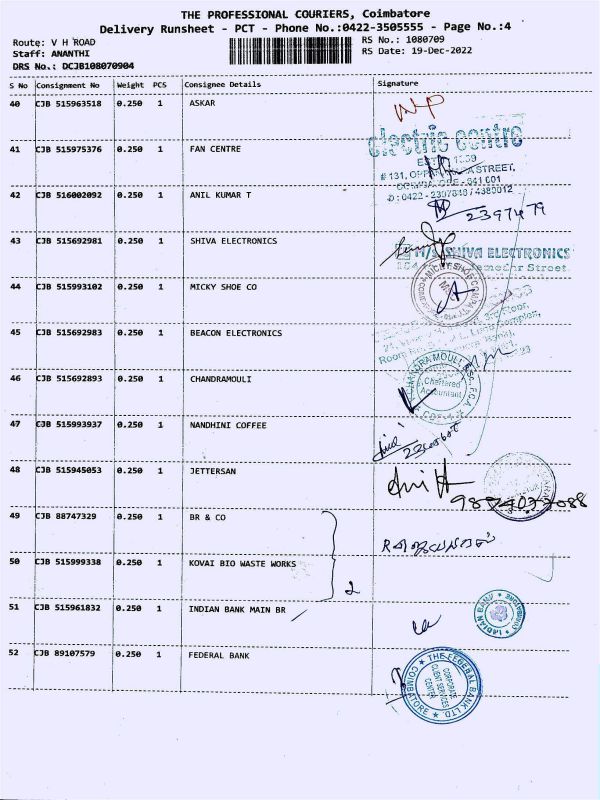 THE PROFESSIONAL COURIERS, Coimbatore
Delivery Runsheet - PCT - Phone No.:0422-3505555 - Page No.:4
Route: V H ROAD
RS No.: 1080709
Staff: ANANTHI
RS Date: 19-Dec-2022
DRS No.: DCJB108070904
S No Consignment No Weight PCS Consignee Details Signature
40 CJB 515963518 0.250 1 ASKAR
41 CJB 515975376 0.250 1 FAN CENTRE
electric centre
# 131, STREET,
42 CJB 516002092 0.250 1 ANIL KUMAR T
2397479
43 CJB 515692981 0.250 1 SHIVA ELECTRONICS
SHIVA ELECTRONICS
Street
44 CJB 515993102 0.250 1 MICKY SHOE CO
45 CJB 515692983 0.250 1 BEACON ELECTRONICS
46 CJB 515692893 0.250 1 CHANDRAMOULI
CHANDRAMOULI
Chartered
Accountant
47 CJB 515993937 0.250 1 NANDHINI COFFEE
48 CJB 515945053 0.250 1 JETTERSAN
49 CJB 88747329 0.250 1 BR & CO
50 CJB 515999338 0.250 1 KOVAI BIO WASTE WORKS
2
51 CJB 515961832 0.250 1 INDIAN BANK MAIN BR
INDIAN BANK
52 CJB 89107579 0.250 1 FEDERAL BANK
THE FEDERAL BANK LTD.
COIMBATORE
CORPORATE
CLIENT SERVICES
CENTER